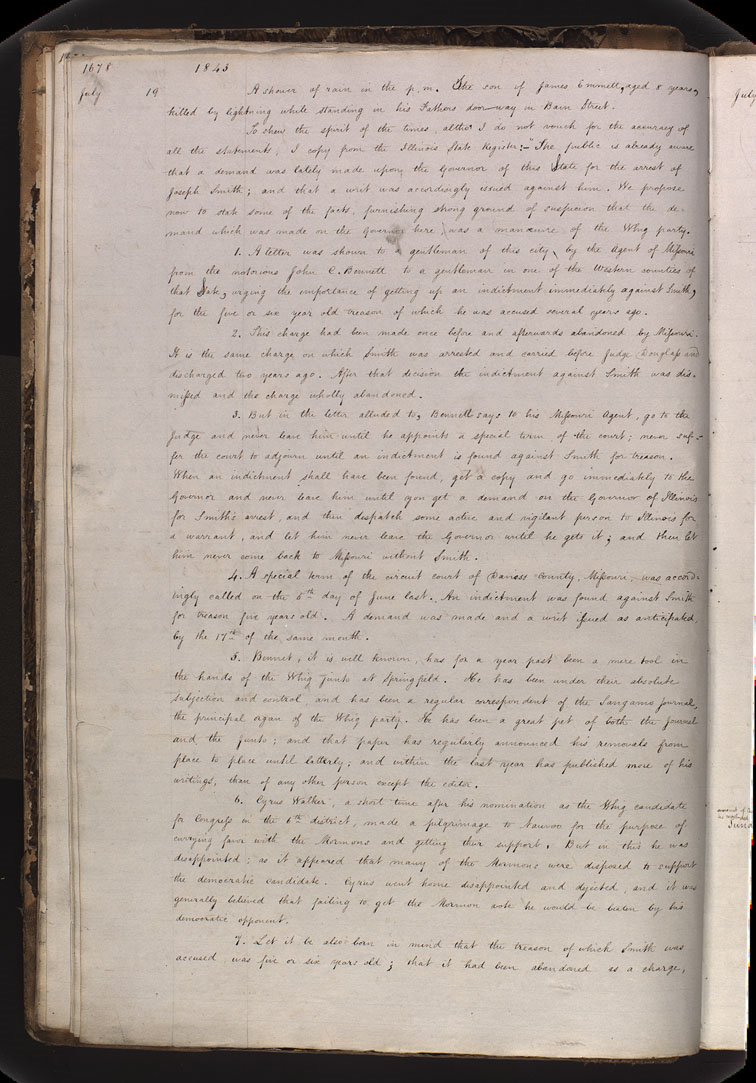 1678 1843
July 19 A shower of rain in the p. m. The son of James Emmett, aged 8 years,
killed by lightning while standing in his Fathers door-way in Bain Street.
To shew the spirit of the times, altho' I do not vouch for the accuracy of
all the statements, I copy from the Illinois State Register:— "The public is already aware
that a demand was lately made upon the Governor of this State for the arrest of
Joseph Smith; and that a writ was accordingly issued against him. We propose
now to state some of the facts, furnishing strong ground of suspicion that the de-
mand which was made on the Governor here, was a manœuvre of the Whig party.
1. A letter was shown to a gentleman of this city, by the Agent of Missouri
from the notorious John C. Bennett to a gentleman in one of the Western counties of
that State, urging the importance of getting up an indictment immediately against Smith,
for the five or six year old treason of which he was accused several years ago.
2. This charge had been made once before and afterwards abandoned by Missouri.
It is the same charge on which Smith was arrested and carried before Judge Douglass and
discharged two years ago. After that decision the indictment against Smith was dis-
missed and the charge wholly abandoned.
3. But in the letter alluded to, Bennett says to his Missouri Agent, go to the
Judge and never leave him until he appoints a special term of the court; never suf-
fer the court to adjourn until an indictment is found against Smith for treason.
When an indictment shall have been found, get a copy and go immediately to the
Governor and never leave him until you get a demand on the Governor of Illinois
for Smith's arrest, and then despatch some active and vigilant person to Illinois for
a warrant, and let him never leave the Governor until he gets it; and then let
him never come back to Missouri without Smith.
4. A special term of the circuit court of Daviess County, Missouri, was accord-
ingly called on the 5th day of June last. An indictment was found against Smith
for treason five years old. A demand was made and a writ issued as anticipated
by the 17th of the same month.
5. Bennet, it is well known, has for a year past been a mere tool in
the hands of the Whig junto at Springfield. He has been under their absolute
subjection and control, and has been a regular correspondent of the Sangamo Journal,
the principal organ of the Whig party. He has been a great pet of both the Journal
and the junto; and that paper has regularly announced his removals from
place to place until latterly; and within the last year has published more of his
writings, than of any other person except the editor.
6. Cyrus Walker, a short time after his nomination as the Whig candidate
for Congress in the 6th district, made a pilgrimage to Nauvoo for the purpose of
currying favor with the Mormons and getting their support. But in this he was
disappointed; as it appeared that many of the Mormons were disposed to support
the democratic candidate. Cyrus went home disappointed and dejected; and it was
generally believed that failing to get the Mormon vote he would be beaten by his
democratic opponent.
7. Let it be also born in mind that the treason of which Smith was
accused, was five or six years old; that it had been abandoned as a charge,
July